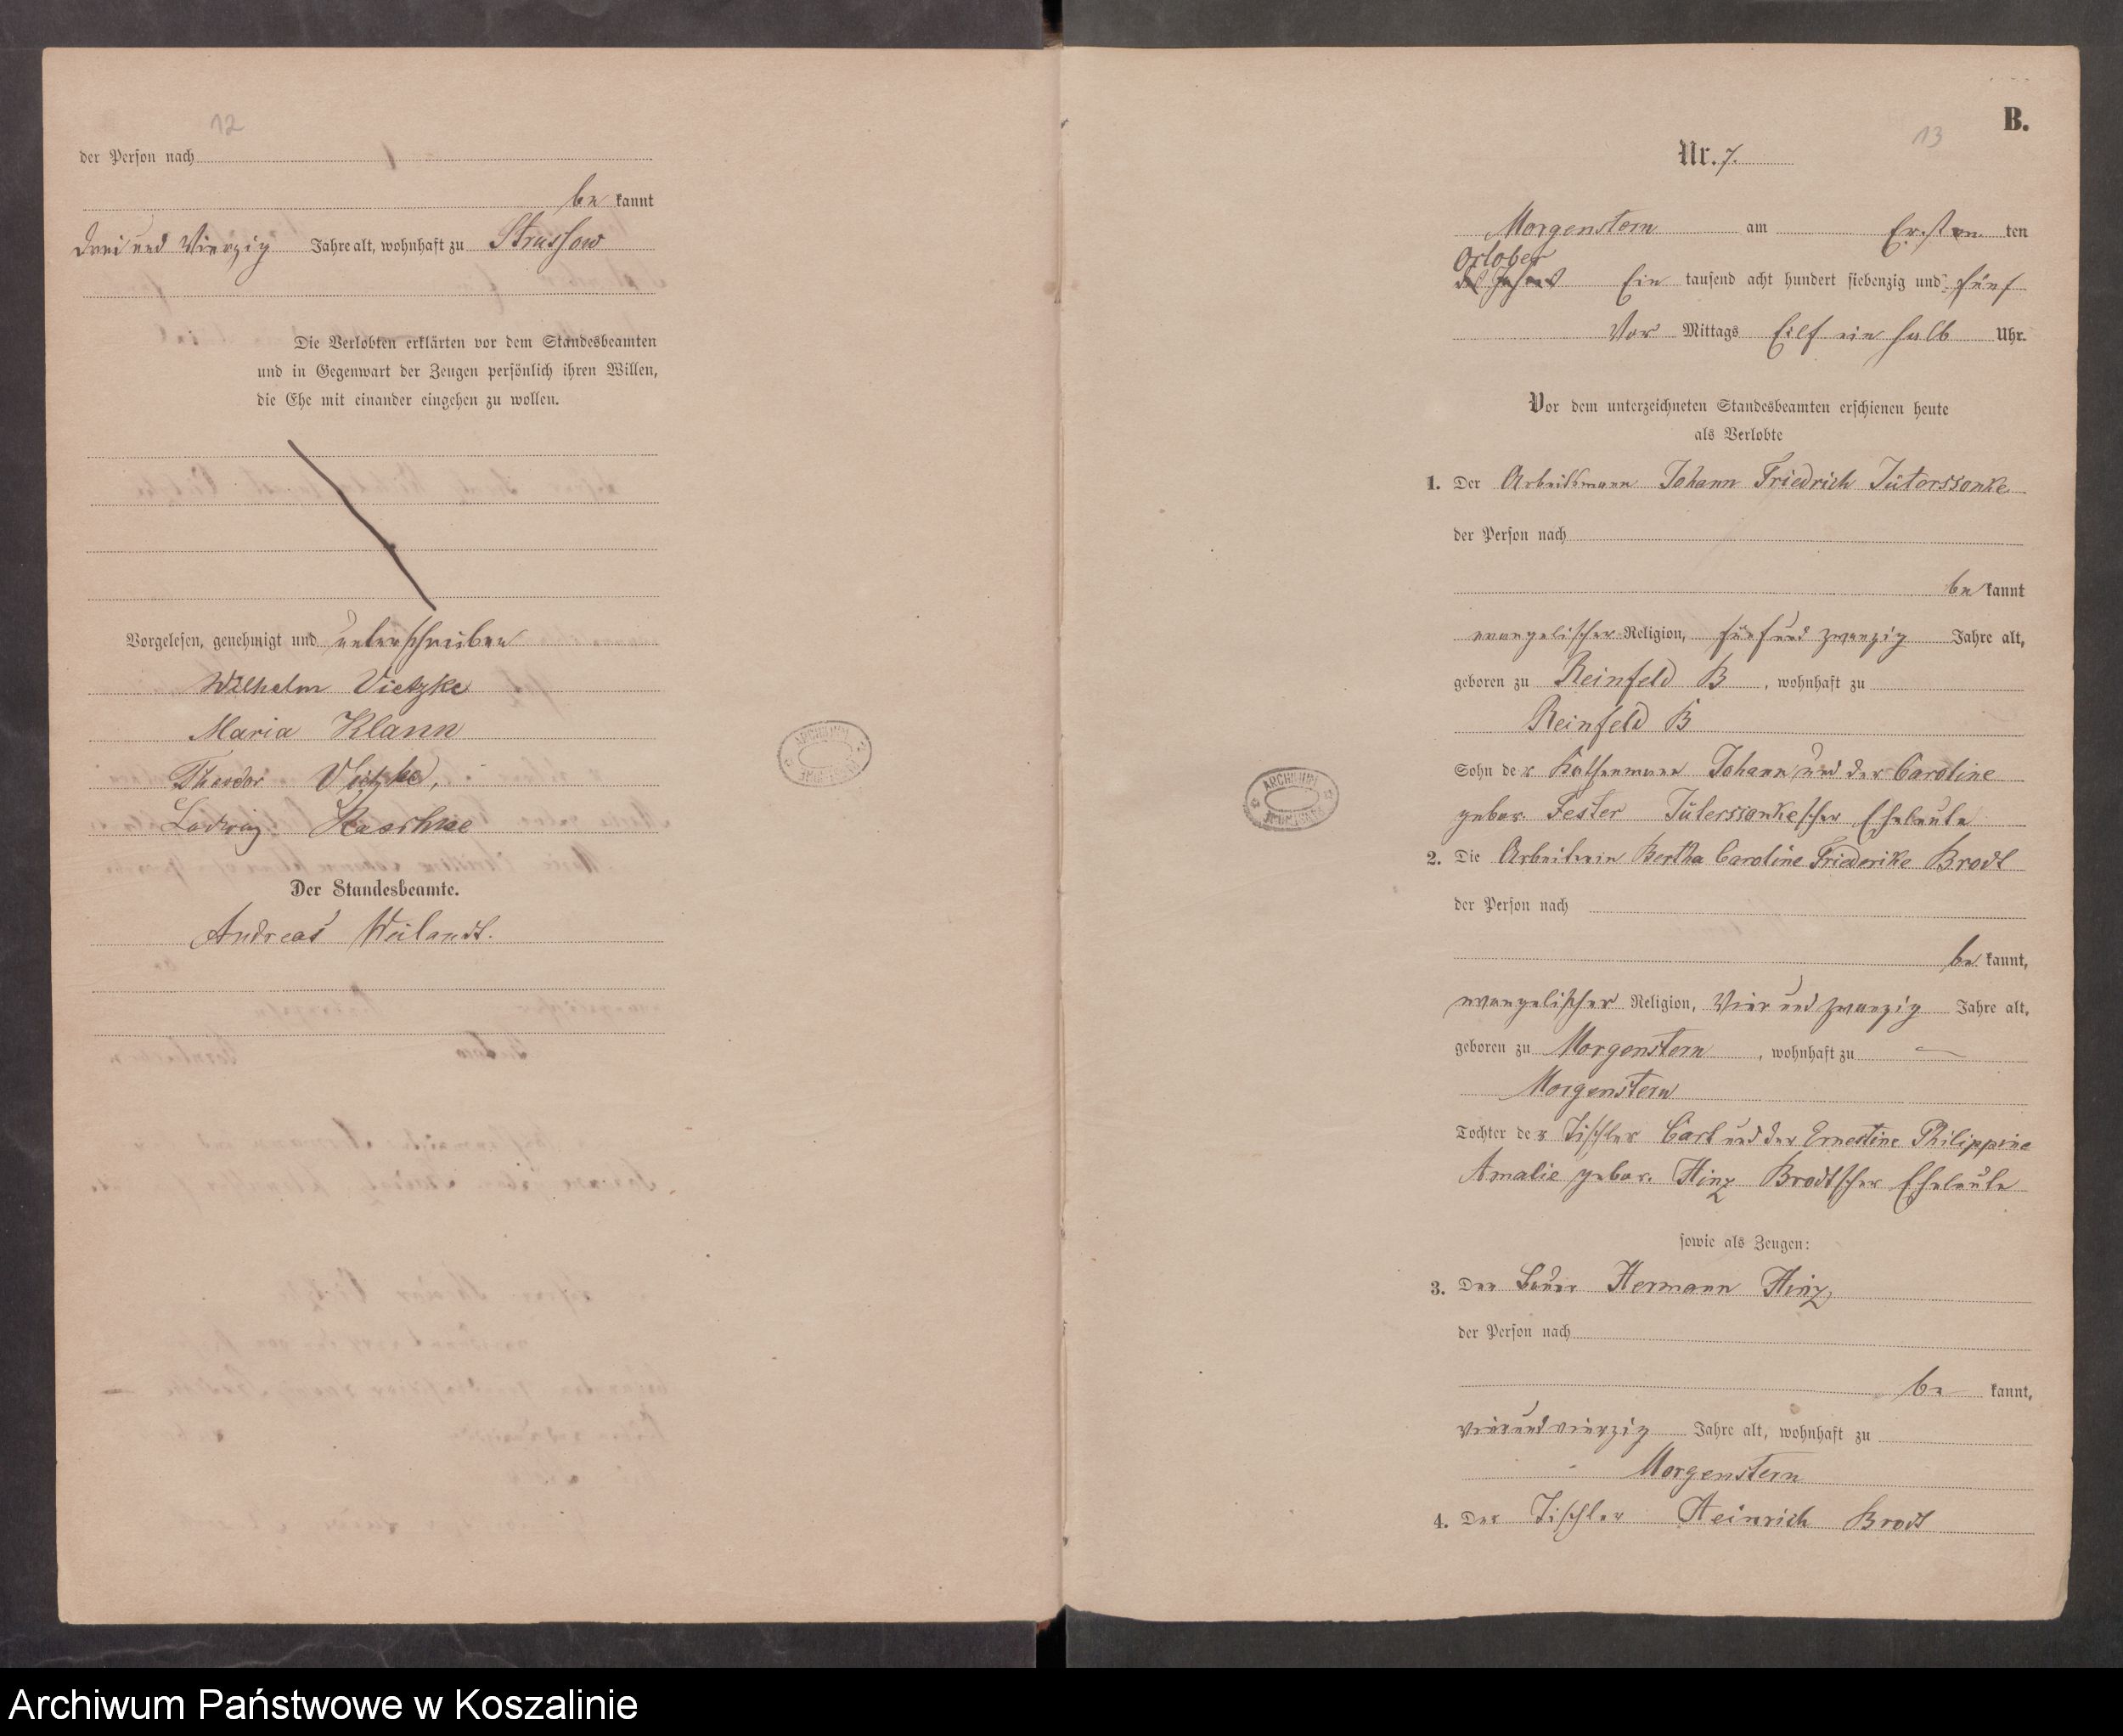 12
der Person nach
be kannt
drei und Vierzig Jahre alt, wohnhaft zu Strussow
Die Verlobten erklärten vor dem Standesbeamten
und in Gegenwart der Zeugen persönlich ihren Willen,
die Ehe mit einander eingehen zu wollen.
Vorgelesen, genehmigt und unterschrieben
Wilhelm Vietzke
Maria Klann
Theodor Vietzke,
Ludwig Raschke
Der Standesbeamte.
Andreas Weilandt.
ARCHIWUM
B.
13
Nr. 7.
Morgenstern am Ersten ten
October
des Jahres Ein tausend acht hundert siebenzig und fünf
Vor Mittags Eilf ein halb Uhr.
Vor dem unterzeichneten Standesbeamten erschienen heute
als Verlobte
1. Der Arbeitsmann Johann Friedrich Jüterssonke
der Person nach
be kannt
evangelischer Religion, fünf und zwanzig Jahre alt,
geboren zu Reinfeld B, wohnhaft zu
Reinfeld B
Sohn der Kathenmann Johann und der Caroline
gebor. Fester Jüterssonkescher Eheleute
2. Die Arbeiterin Bertha Caroline Friederike Brodt
der Person nach
be kannt,
evangelischer Religion, Vier und zwanzig Jahre alt,
geboren zu Morgenstern, wohnhaft zu
Morgenstern
Tochter der Tischler Carl und der Ernestine Philippine
Amalie gebor. Hinz Brodtscher Eheleute
sowie als Zeugen:
3. Der Bauer Hermann Hinz,
der Person nach
be kannt,
vier und vierzig Jahre alt, wohnhaft zu
Morgenstern
4. Der Tischler Heinrich Brodt
ARCHIWUM
Archiwum Państwowe w Koszalinie